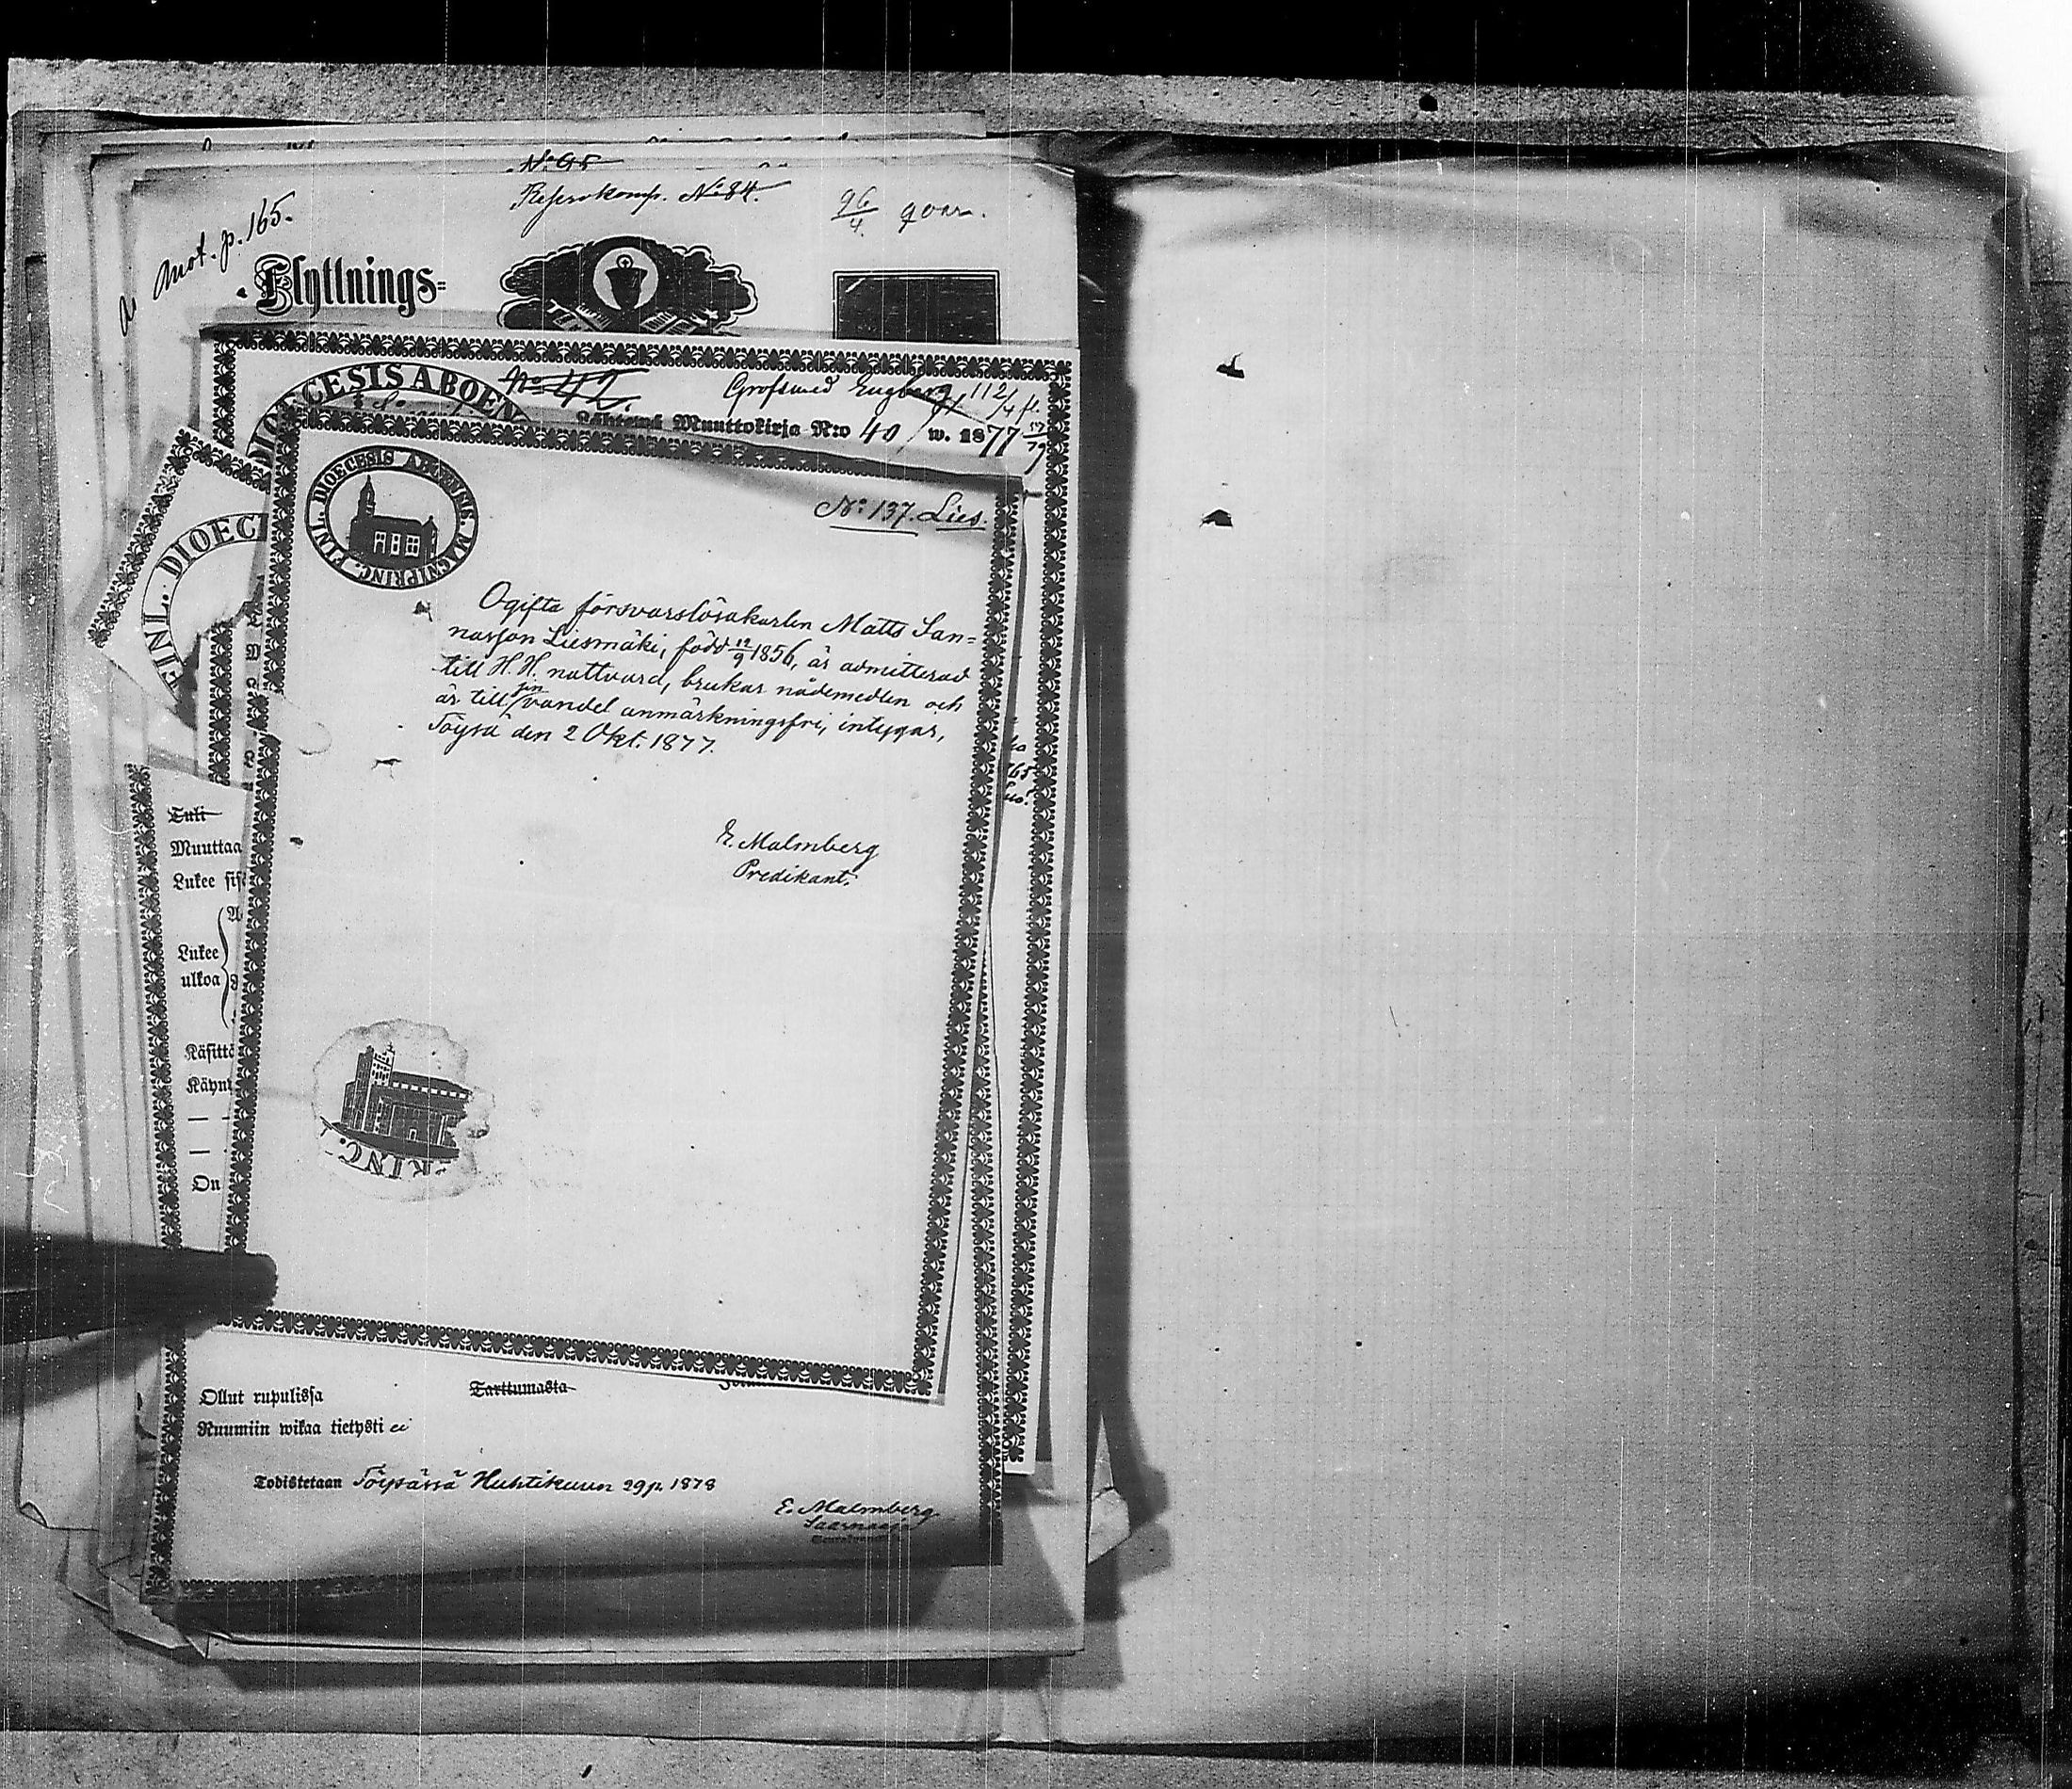 No 95
Reservkomp. No 84.
96/4 qvar.
a Mot. p. 165.
Flyttnings=
DIOECESIS ABOEN
No 42.
Grofsmed Engberg 112/4 fl.
Lähtewä Muuttokirja N:o 40 w. 1877
FINL. DIOECESIS ABOENSIS. MAGNIPRINC.
No 137. Lies.
Ogifta försvarslösakarlen Matts San=
nasson Liesmäki, född 12/9 1856, är admitterad
till H. H. nattvard, brukar nådemedlen och
är till sin vandel anmärkningsfri, intygar,
Töysä den 2 Okt. 1877.
E. Malmberg
Predikant.
FINL. DIOEC
Tuli
Muuttaa
Lukee sisä
Lukee
ulkoa
Käsittä
Käynt
On
RINC.
Ollut rupulissa
Tarttumasta
Ruumiin wikaa tietysti ei
Todistetaan Töysässä Huhtikuun 29 p. 1878
E. Malmberg
Saarnaaja